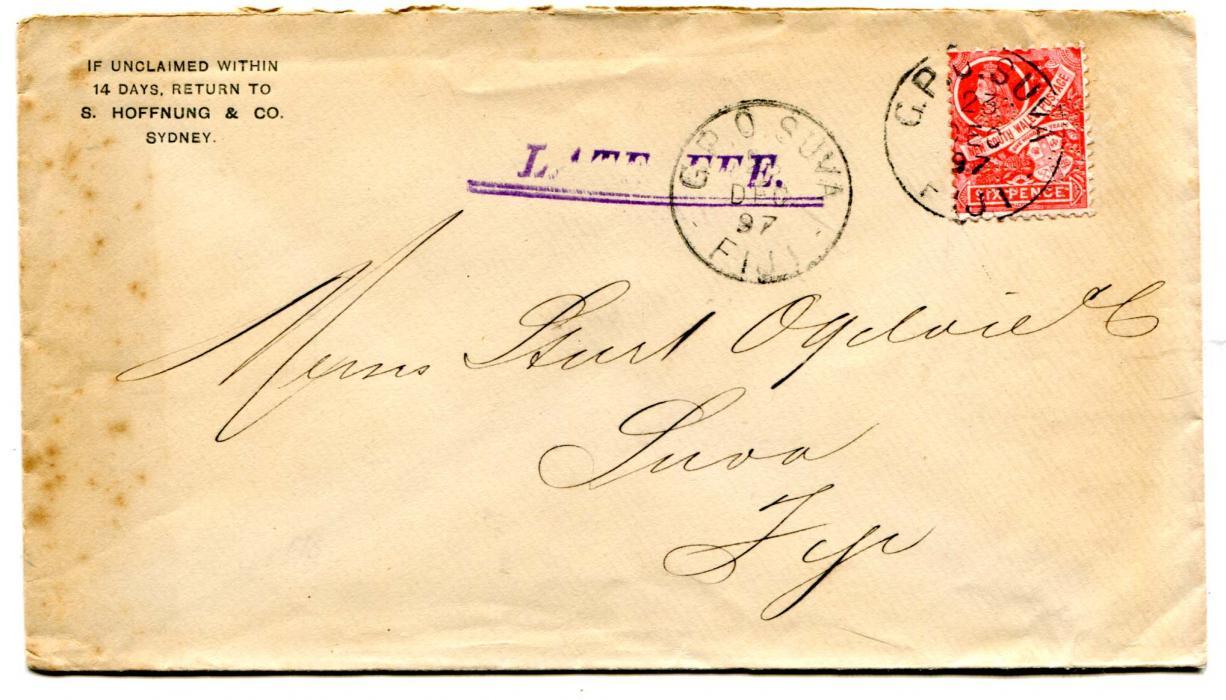 IF UNCLAIMED WITHIN
14 DAYS, RETURN TO
S. HOFFNUNG & CO.
SYDNEY.
LATE FEE.
G.P.O. SUVA
DEC
97
FIJI
G.P.O. SUVA
97
FIJI
NEW SOUTH WALES POSTAGE
SIXPENCE
Messrs Sturt Ogilvie & C
Suva
Fiji